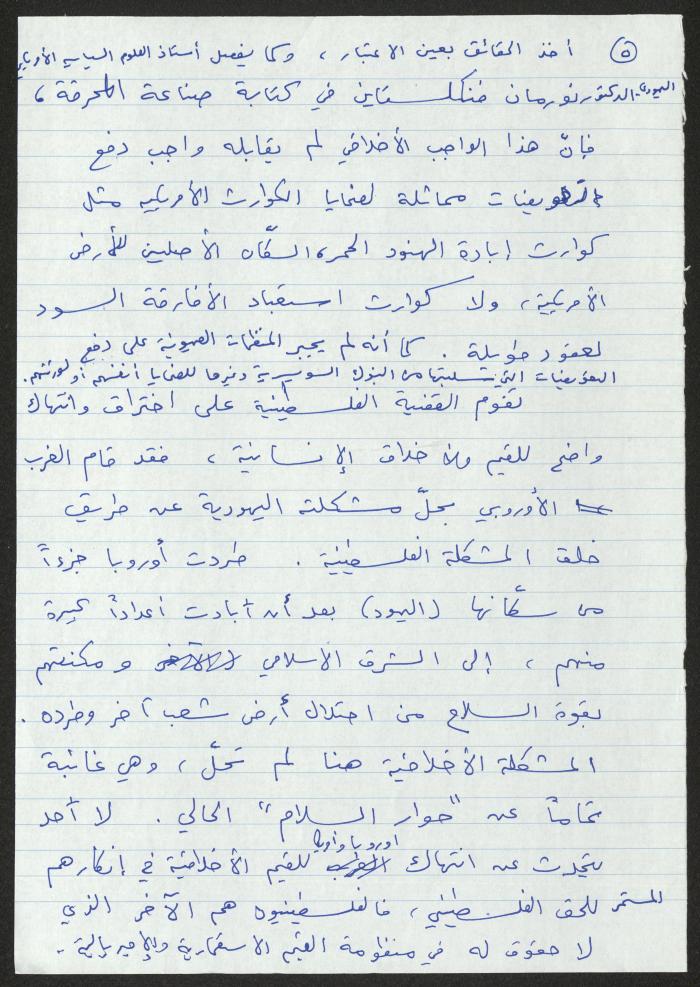 ٥ أخذ الحقائق بعين الاعتبار ، وكما يفصل أستاذ العلوم السياسية
اليهودي الدكتور نورمان فنكلستاين في كتابة صناعة المحرقة ،
فإنّ هذا الواجب الأخلاقي لم يقابله واجب دفع
تعويضات مماثلة لضحايا الكوارث الأمريكية مثل
كوارث إبادة الهنود الحمر ، السكّان الأصليين للأرض
الأمريكية ، ولا كوارث استعباد الأفارقة السود
لعقود طويلة . كما أنه لم يجبر المنظمات الصهيونية على دفع
التعويضات التي تسلمتها من البنوك السويسرية وغيرها للضحايا أنفسهم أو لورثتهم .
تقوم القضية الفلسطينية على اختراق وانتهاك
واضح للقيم والأخلاق الإنسانية ، فقد قام الغرب
الأوروبي بحلّ مشكلته اليهودية عن طريق
خلق المشكلة الفلسطينية . طردت أوروبا جزءاً
من سكّانها (اليهود) بعد أن أبادت أعداداً كبيرة
منهم ، إلى الشرق الاسلامي ومكنتهم
بقوة السلاح من احتلال أرض شعب آخر وطرده .
المشكلة الأخلاقية هنا لم تحلّ ، وهي غائبة
تماماً عن "حوار السلام" الحالي . لا أحد
يتحدث عن انتهاك اوروبا للقيم الأخلاقية في إنكارهم
المستمر للحق الفلسطيني ، فالفلسطينيون هم الآخر الذي
لا حقوق له في منظومة القيم الاستعمارية والإمبريالية .